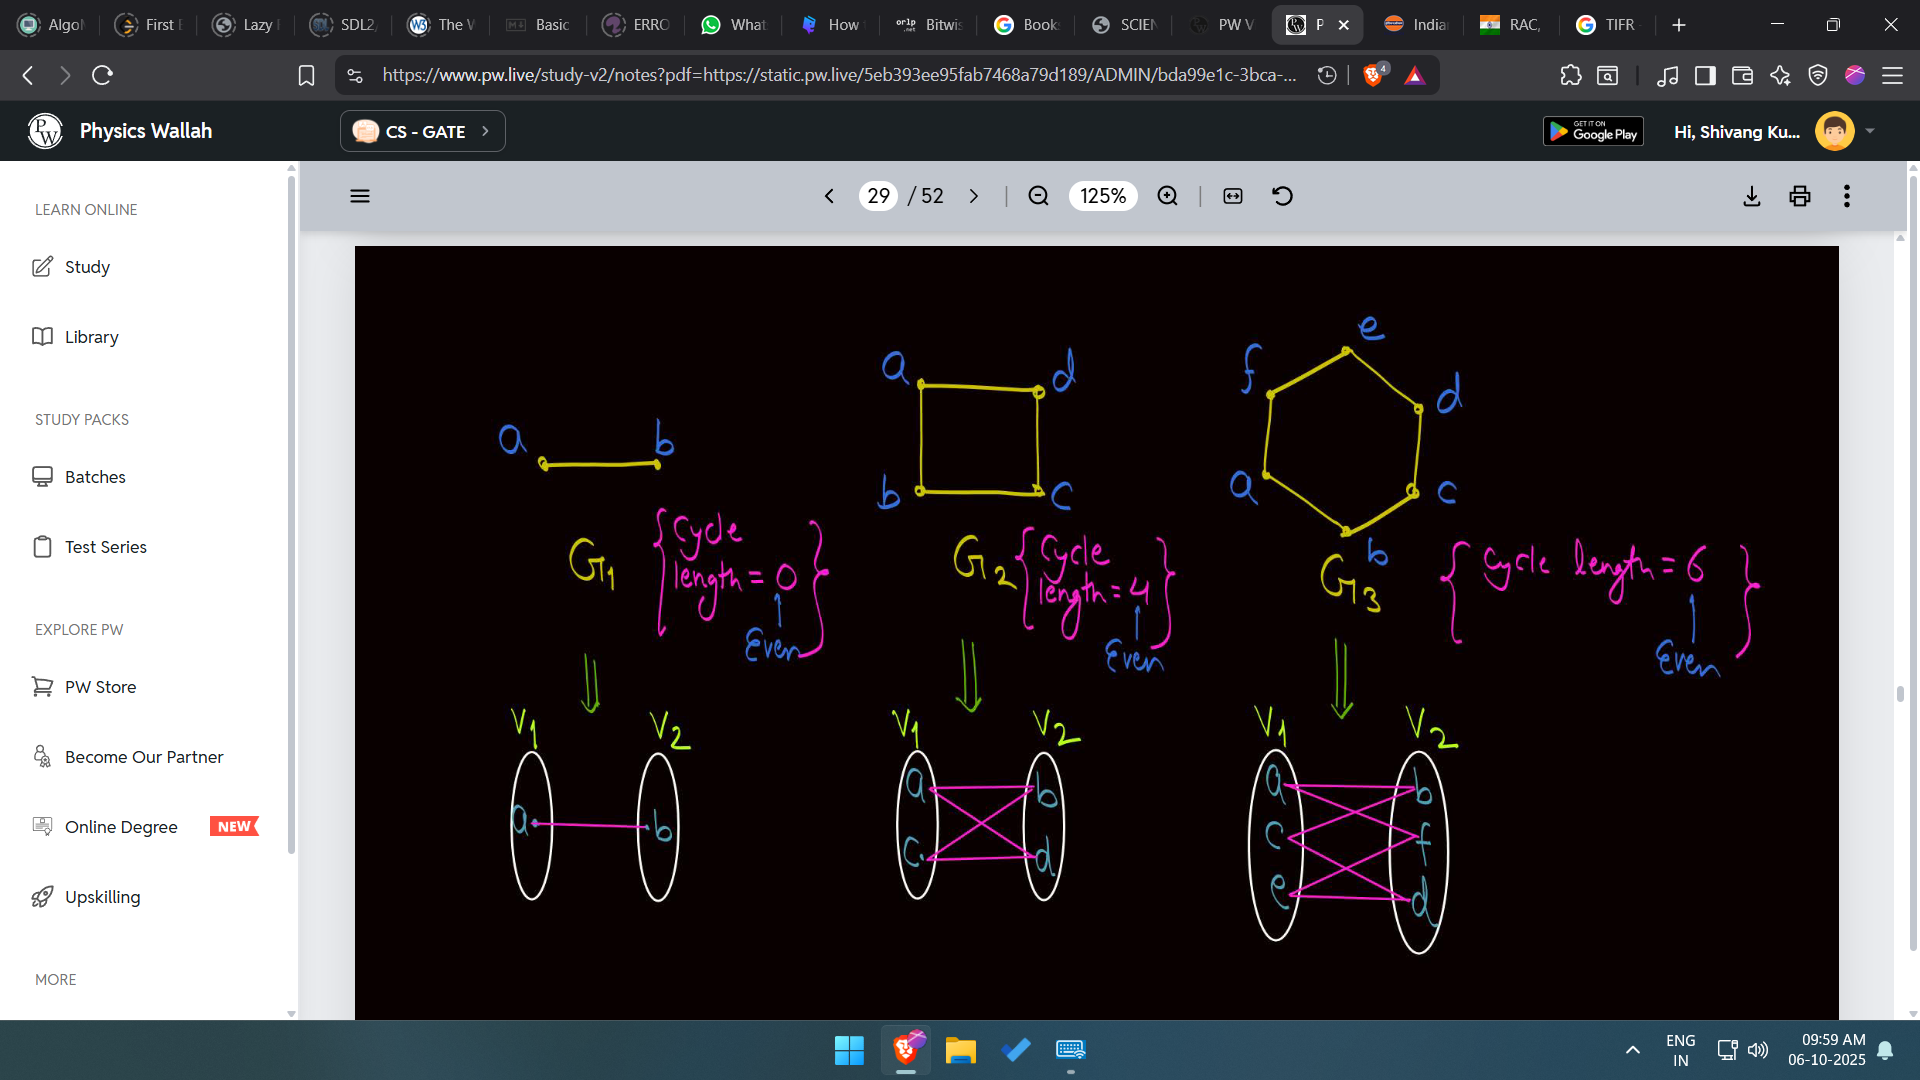 AlgoM
First E
Lazy
SDL2,
The W
Basic
ERRO
What
How
Bitwis
Book
SCIEN
PW V
P
India
RAC,
TIFR
https://www.pw.live/study-v2/notes?pdf=https://static.pw.live/5eb393ee95fab7468a79d189/ADMIN/bda99e1c-3bca-...
4
Physics Wallah
CS - GATE
GET IT ON
Google Play
Hi, Shivang Ku...
29 / 52
125%
LEARN ONLINE
Study
Library
STUDY PACKS
Batches
Test Series
EXPLORE PW
PW Store
Become Our Partner
Online Degree NEW
Upskilling
MORE
a b
a d
b c
f e d
a b c
G1 { Cycle length = 0 }
Even
G2 { Cycle length = 4 }
Even
G3 { Cycle length = 6 }
Even
V1 V2
a b
V1 V2
a b
c d
V1 V2
a b
c f
e d
ENG
IN
09:59 AM
06-10-2025